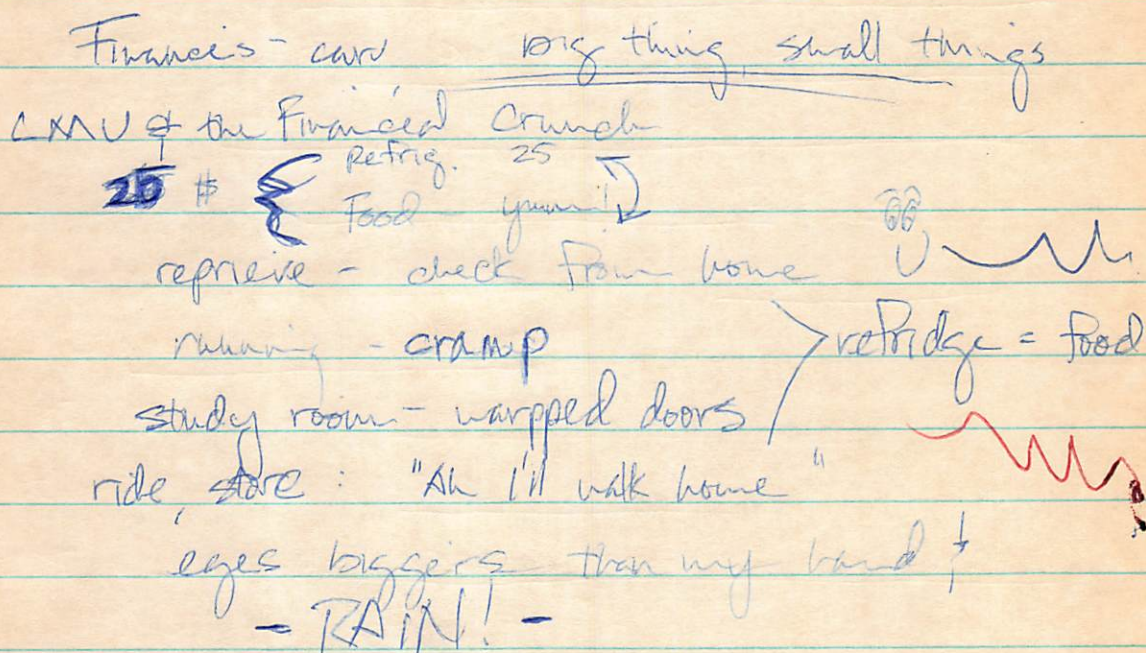 Financeis - card big thing, small things
CMU & the Financial Crunch
Refrig. 25
25 $ { Food - yumm!
reprieve - check from home
running - cramp
refridge = food
study room - warpped doors
ride, store : "Ah I'll walk home"
eges biggers than my hand &
- RAIN! -